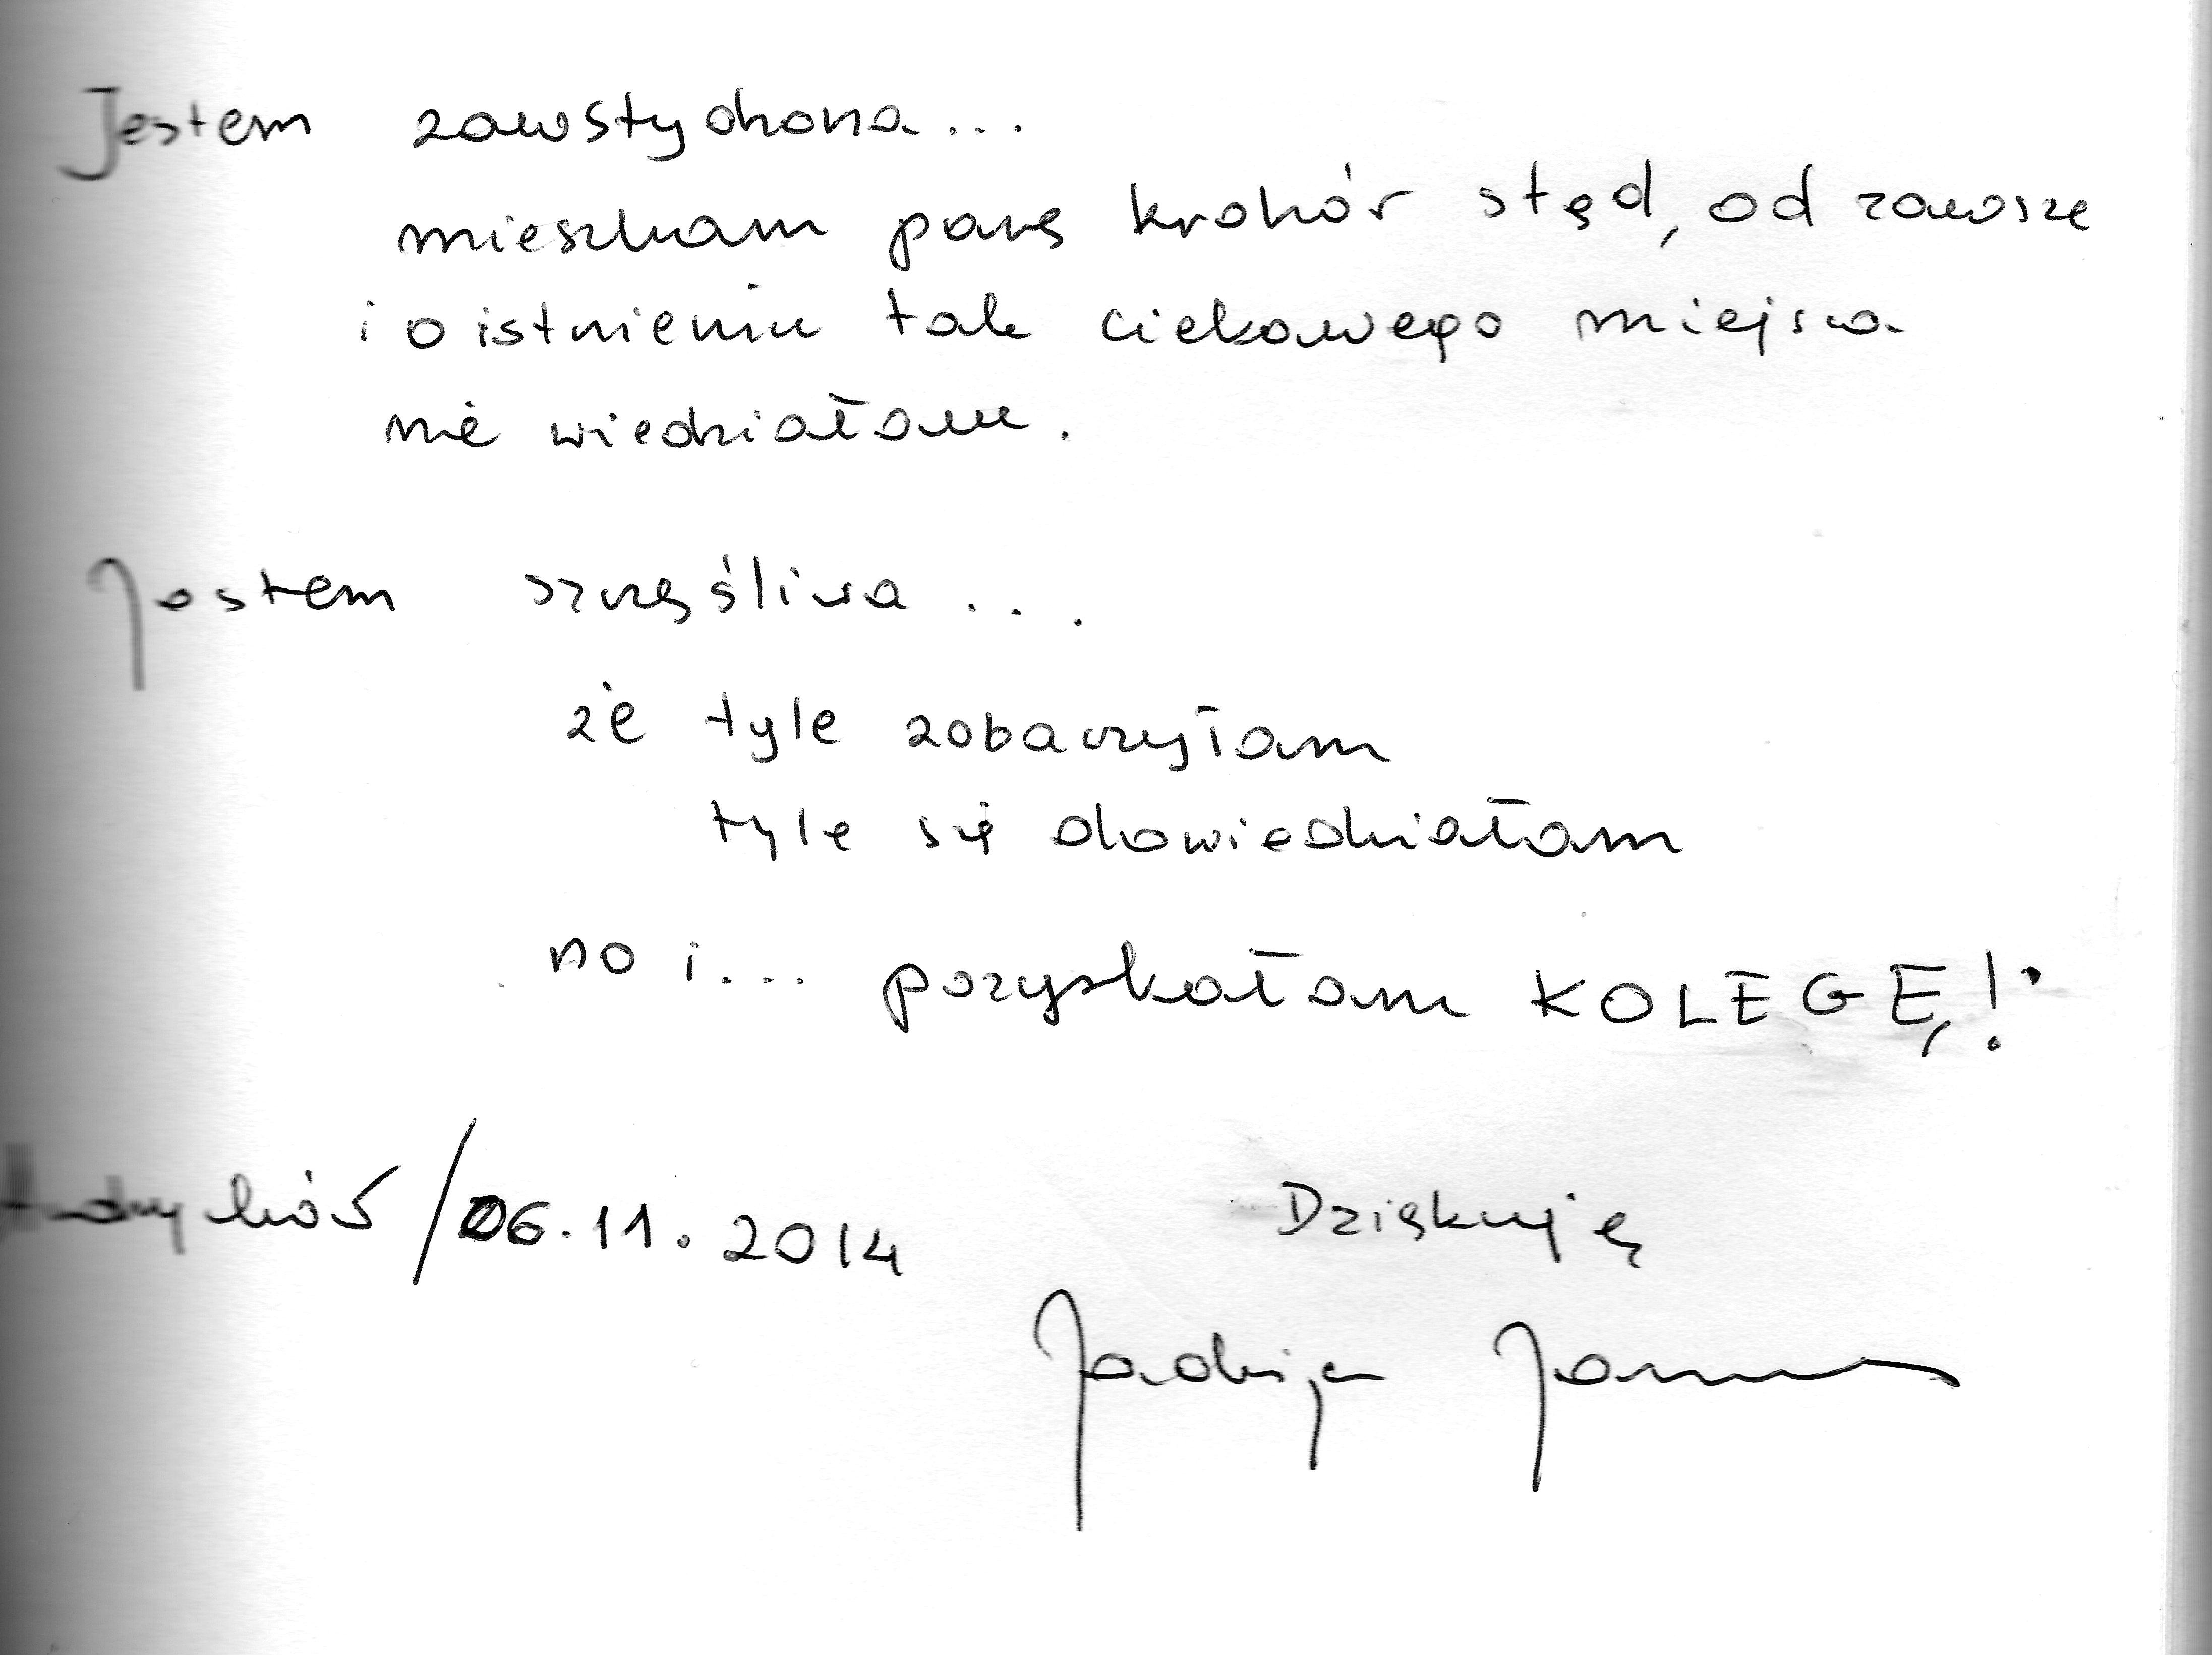 Jestem zawstydzona...
mieszkam parę kroków stąd, od zawsze
i o istnieniu tak ciekawego miejsca
nie wiedziałam.
Jestem szczęśliwa...
że tyle zobaczyłam
tyle się dowiedziałam
no i... pozyskałam KOLEGĘ!
Andrychów / 06.11.2014
Dziękuję